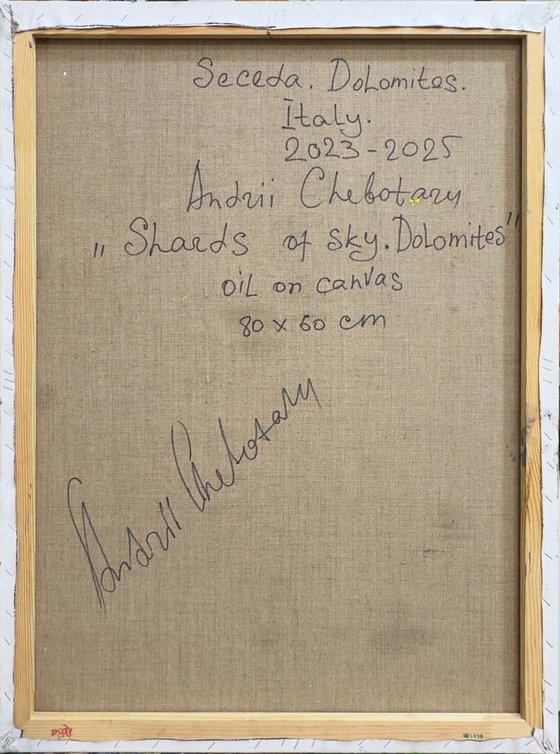 Seceda. Dolomites.
Italy.
2023-2025
Andrii Chebotaru
„Shards of sky. Dolomites"
oil on canvas
80 x 60 cm
Andrii Chebotaru